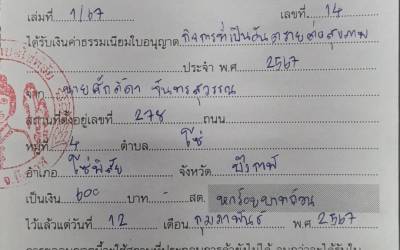 เล่มที่ 1/67 เลขที่ 14
ได้รับเงินค่าธรรมเนียมใบอนุญาต กิจการที่เป็นอันตรายต่อสุขภาพ
ประจำ พ.ศ. 2567
จาก นายศักดิ์ดา จันทรสุวรรณ
สถานที่ตั้งอยู่เลขที่ 278 ถนน
หมู่ที่ 4 ตำบล โซ่
อำเภอ โซ่พิสัย จังหวัด บึงกาฬ
เป็นเงิน 600 บาท - สต. หกร้อยบาทถ้วน
ไว้แล้วแต่วันที่ 12 เดือน กุมภาพันธ์ พ.ศ. 2567